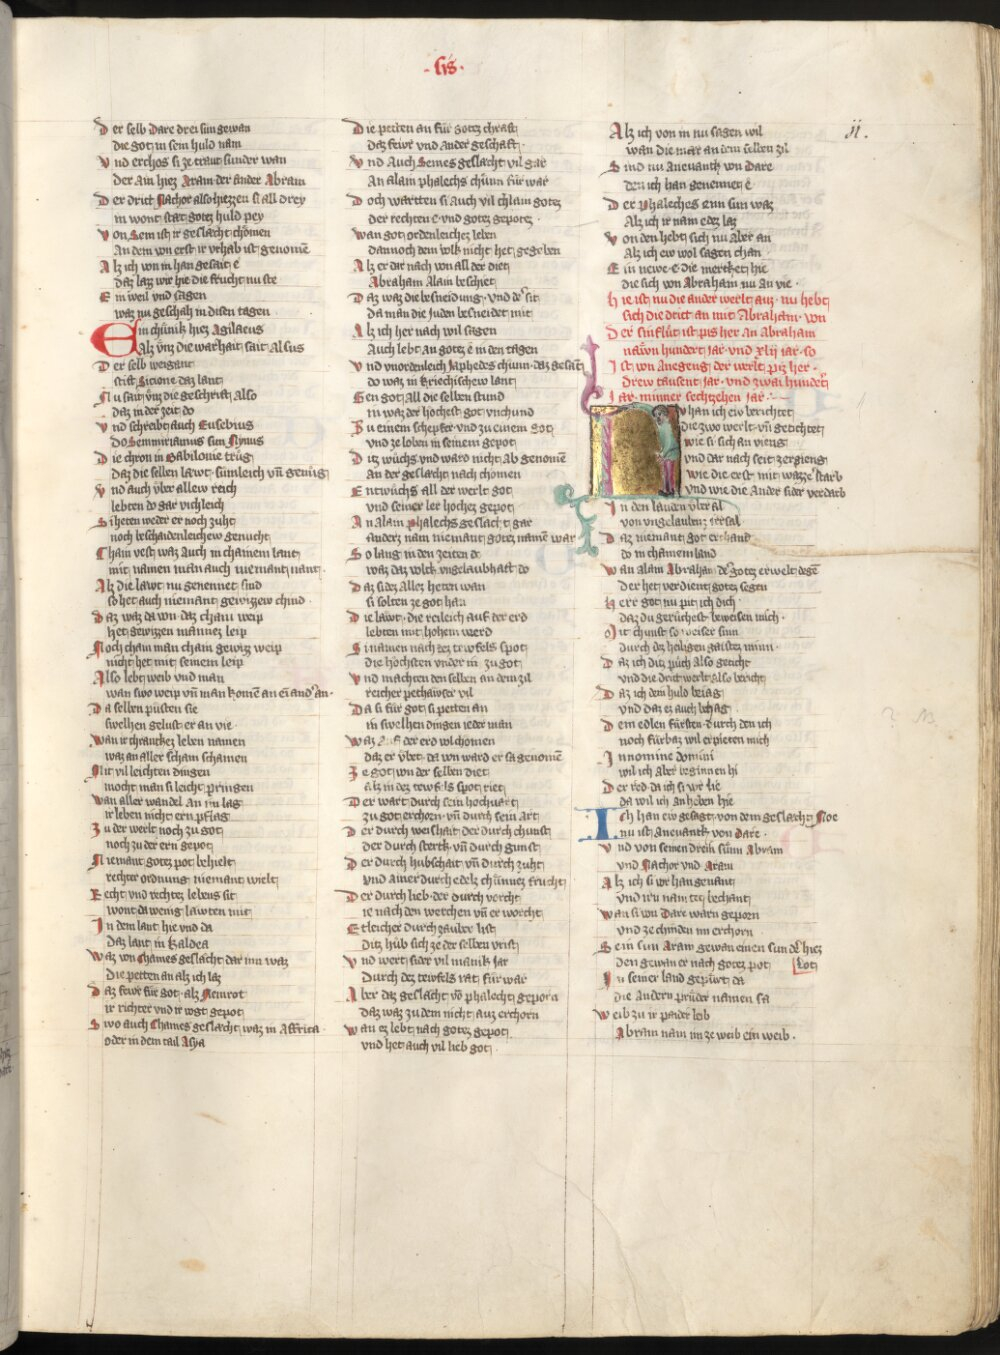 · lis ·
D er selb Dare drei sun gewan
die got in sein huld nam
V nd erchos si ze traut sunder wan
Der Ain hiez Aram der ander Abram
D er drict Nachor also hiezzen si all drey
in wont stat gotez huld pey
V on Sem ist ir geslacht chomen
An dem von erst ir vrhab ist genomē
A lz ich von in han gesait e
Daz laz wir hie die frucht nu ste
E in weil vnd sagen
waz nu geschah in disen tagen
Ein chünik hiez Agilaeus
Alz vns die warhait sait alsus
D er selb weigant
stift Sicione daz lant
N u sait vns die geschrift also
daz in der zeit do
V nd schreibt auch Eusebius
Do Semmiramus sun Nynus
D ie chron in Babilonie trüg
Daz die selben läwt sümleich vn̄ genüg
V nd auch vber allew reich
lebten do gar vichleich
S i heten weder er noch zuht
noch beschaidenleichew genucht
C ham vest waz auch in chainem lant
mit namen man auch niemant nant
A lz die läwt nu genennet sind
so het auch niemant gewizzew chind
D az waz da von daz cham weip
het gewizzen mannez leip
N och cham man cham gewiz weip
nicht het mit seinem leip
A lso lebt weib vnd man
wan swo weip vn̄ man komē an ei and'an
D a selben püsten sie
swelhen gelust er an vie
W an ir chranchez leben namen
waz an aller scham schamen
M it vil leichten dingen
mocht man si leicht pringen
W an aller wandel An im lag
ir leben nicht ern pflag
Z u der werlt noch zu got
noch zu der ern gepot
N iemant gotez pot behielt
rechter ordnung niemant wielt
R echt vnd rechtez lebens sit
wont da wenig läwten mit
I n dem lant hie vnd da
Daz lant in Kaldea
W az von Chames geslacht dar inn waz
Die petten an alz ich laz
D az fewr für got alz Nemrot
ir richter vnd ir vogt gepot
S wo auch Chames geslächt waz in Affrica
oder in dem tail Asya
D ie petten an für gotez chraft
daz fewr vnd Ander geschaft
V nd Auch Semes geslächt vil gar
An alain phalechs chünn für war
D och wartten si auch vil chlain gotez
der rechten e vnd gotez gepotez
W an got ordenleichez leben
dannoch dem volk nicht het gegeben
A lz er dar nach von all der diet
Abraham Alain beschiet
D az waz die besneidung vnd d' sit
da man die Juden besneidet mit
A lz ich her nach wil sagen
Auch lebt an gotez e in den tägen
V nd vnordenleich Japhedes chunn daz gesant
do waz in kriechischew lant
S en got all die selben stund
in waz der hochest got vnchund
Z u einem schepfer vnd zu einem got
vnd ze loben in seinem gepot
D itz wüchs vnd ward nicht Ab genomē
An der geslacht nach chomen
E ntwüchs all der werlt got
vnd seiner ler hochez gepot
A n alain phalechs geslacht gar
anders nam niemant gotez namē war
S o lang in den zeiten do
waz daz volck vngelaubhaft do
D az si dez Allez heten wan
si solten ze got han
D ie läwt die reileich auf der erd
lebten mit hohem werd
S i namen nach dez tewfels spot
die hochsten vnder in zu got
V nd machten den selben an dem zil
reicher pethäwser vil
D a si für got si petten an
in swelhen dingen ieder man
W az auf der erd wol chomen
daz er vbet da von ward er sa genomē
Z e got von der selben diet
alz in dez tewfels spot riet
D er wart durch sein hochvart
zu got erchorn vn̄ durch sein art
D er durch weishait der durch chunst
der durch sterck vn̄ durch gunst
D er durch hubschait vn̄ durch zuht
vnd ainer durch edelz chunnez frucht
D er durch lieb der durch vorcht
ie nach den werchen vn̄ er worcht
E tleicher durch zauber list
Ditz hüb sich ze der selben vrist
V nd wert sider vil manik Jar
Durch dez tewfels rat für war
A ber daz geslacht vō phalecht geporn
daz waz zu dem nicht auz erchorn
W an ez lebt nach gotez gepot
vnd het auch vil lieb got
ij.
A lz ich von in nu sagen wil
wan die mär an dem selben zil
S ind nu Anevankch von Dare
den ich han genennet e
D er phaleches enn sun waz
Alz ich ir nam e dez laz
V on den hebt sich nu aber an
Alz ich ew wol sagen chan
E in newe e die mercket hie
die sich von Abraham nu an vie
H ie ist nu die ander werlt auz nu hebt
sich die drit an mit Abraham von
D er sinflüt ist pis her an Abraham
nawn hundert Jar vnd xlij jar so
I st von Anegeng der werlt piz her
Drew tausent Jar vnd zwai hundert
I ar minner sechtzehen jar
Nu han ich ew berichtet
die zwo werlt vn̄ getichtet
wie si sich an vieng
vnd dar nach seit zergieng
wie die erst mit wazze' starb
vnd wie die Ander sider verdarb
I n den landen vber al
von vngelauben irresal
D az niemant got erchand
do in chainem land
W an alain Abraham d' gotez erwelt degē
Der het verdient gotez segen
H erre got nu pit ich dich
daz du geruchest beweisen mich
M it chunst so weiser sinn
durch dez heiligen gaistez minn
D az ich ditz puch Also geticht
vnd die drit werlt also bericht
D az ich dem huld beiag
vnd daz ez auch behag
D em edlen fürsten durch den ich
noch fürbaz wil erpieten mich
I n nomine domini
wil ich aber beginnen hi
D er red da ich si v'e lie
da wil ich an heben hie
Ich han ew gesagt von dem geslächt Noe
nu ist Anevanck von Dare
V nd von seinen drein sünn Abram
vnd Nachor vnd Aram
A lz ich si vor han genant
vnd iru nam tet bechant
W an si von Dare warn geporn
vnd ze chinden im erchorn
S ein sun Aram gewan einen sun d' hiez
Den gewan er nach gotez pot
Lot
I n seiner land gepürt da
die Andern prüder namen sa
W eib zu ir pæder lob
Abram nam im ze weib ein weib